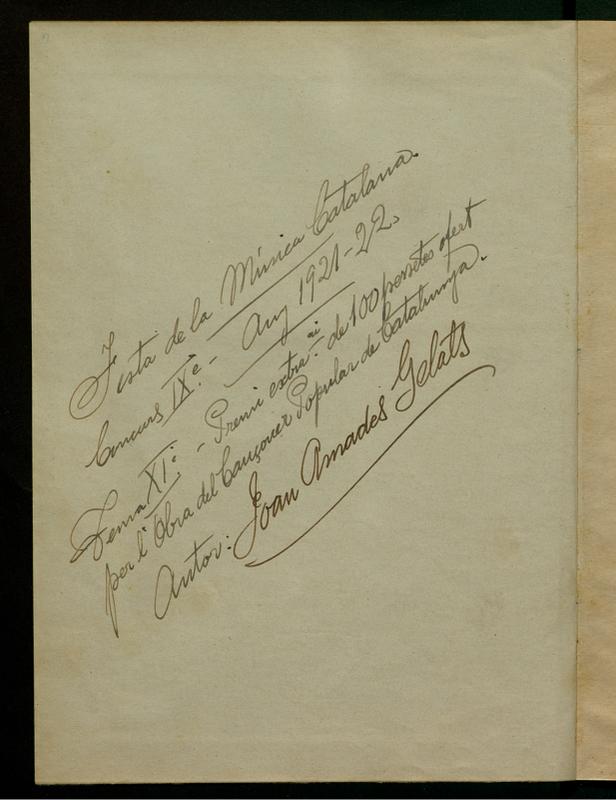 Festa de la Música Catalana.
Concurs IXè. - Any 1921-22.
Tema XIè. - Premi extra.ari de 100 pessetes ofert
per l'Obra del Cançoner Popular de Catalunya.
Autor: Joan Amades Gelats